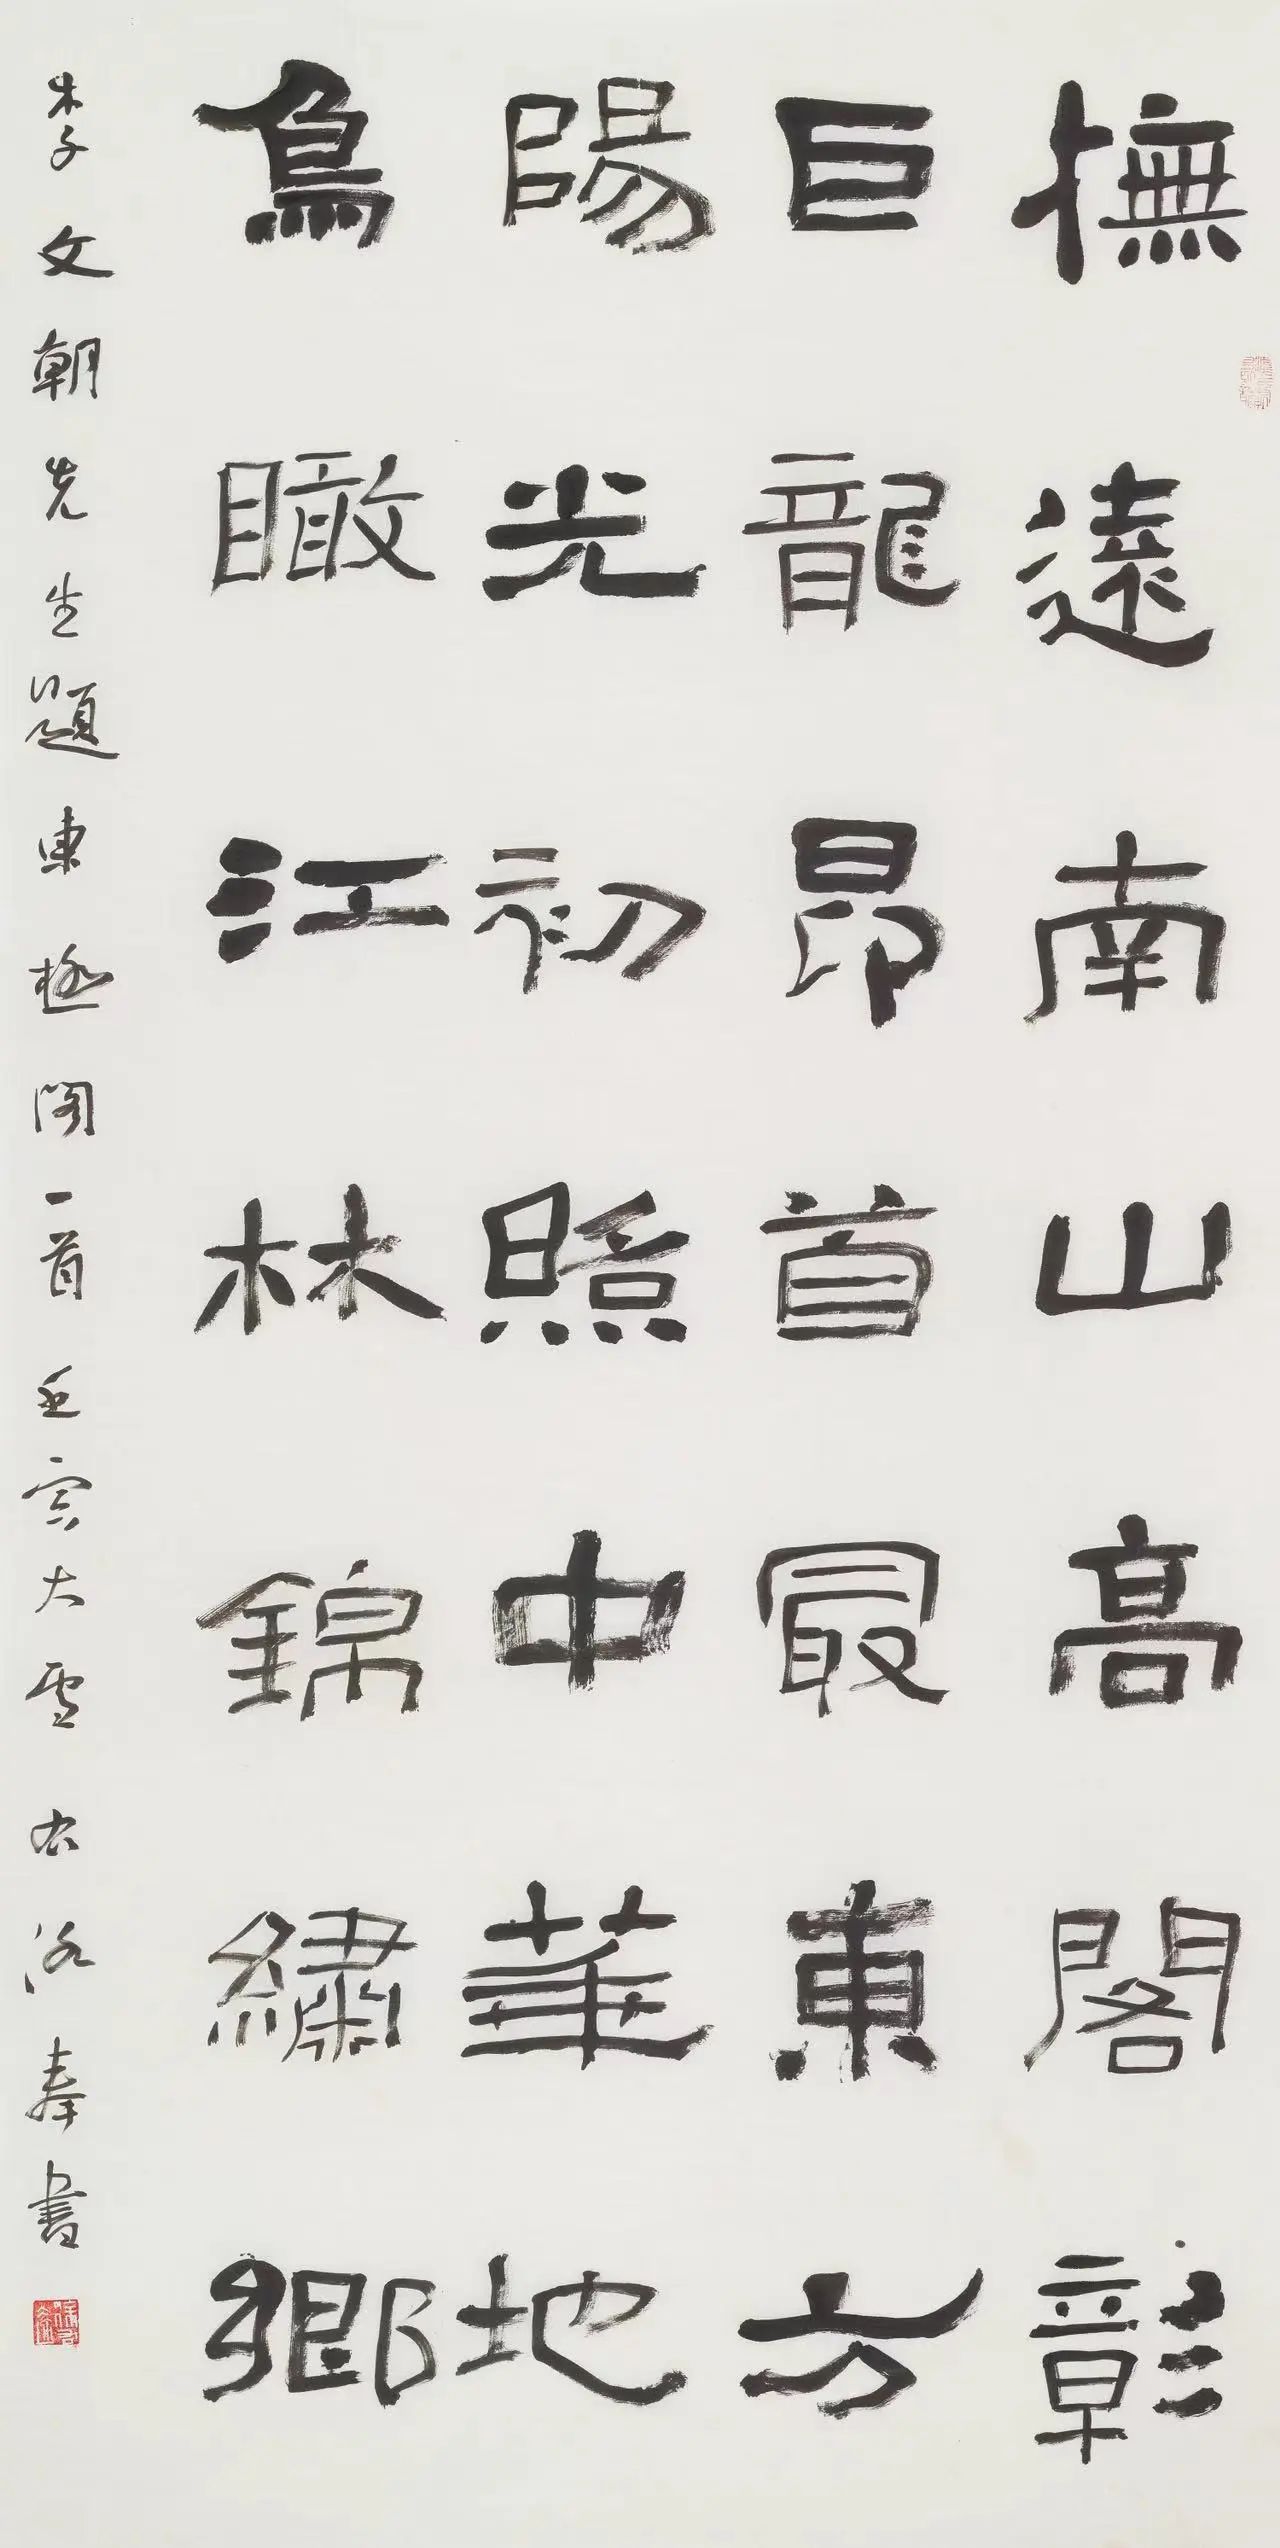 撫遠南山高閣彰
巨龍昂首最東方
陽光初照中華地
鳥瞰江林錦繡鄉
李文朝先生題東極閣一首壬寅大雪右洛奉書